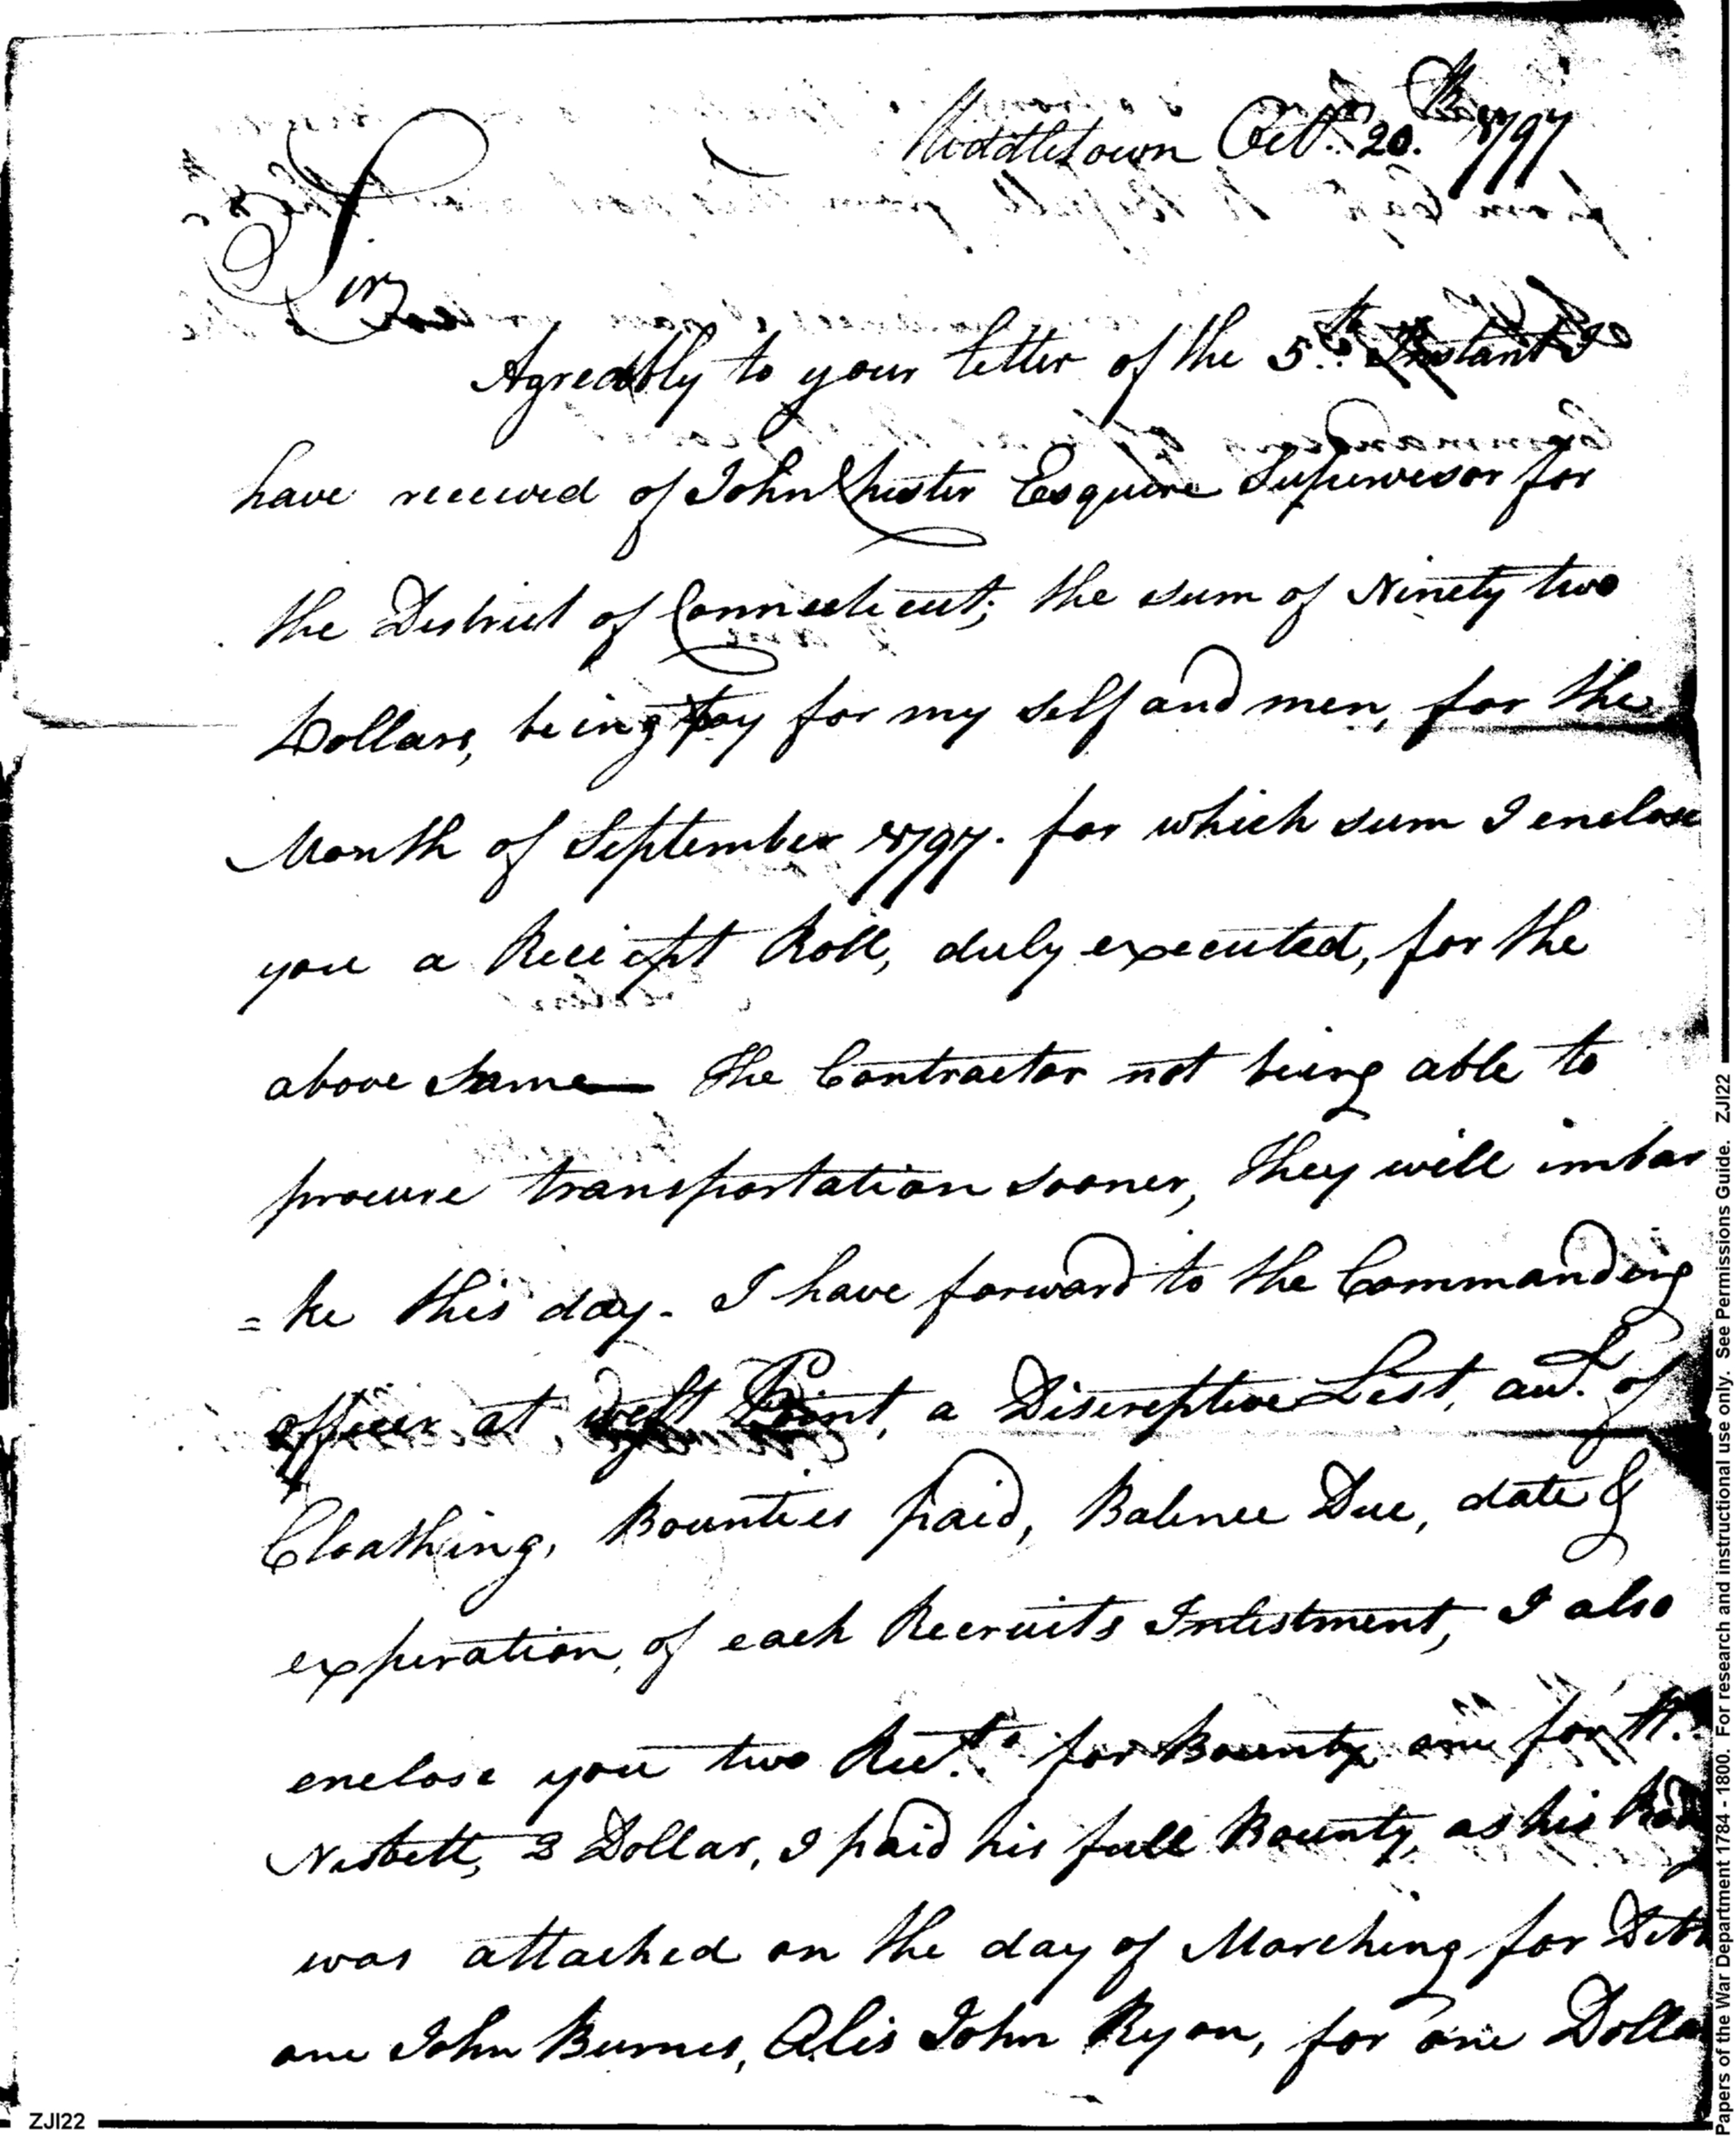 Middletown Oct.r 20.th 1797
Sir,
Agreeably to your letter of the 5.th Instant I
have received of John Chester Esquire Supervisor for
the District of Connecticut; the sum of Ninety two
Dollars, being pay for my self and men, for the
Month of September 1797. for which sum I enclose
you a Reciept Roll, duly executed, for the
above same — The Contractor not being able to
procure transportation sooner, they will imbar
=ke this day - I have forward to the Commanding
officer at West Point, a Discreptive List, au.t of
Cloathing, Bounties paid, Balnce Due, date &
experation, of each Recruits Inlistment, I also
enclose you two Rec.ts for Bounty one for
Nesbett, 2 Dollar, I paid his full Bounty, as his
was attached on the day of Marching for Debt
one John Burnes, Alis John Ryon, for one Dolla
ZJI22
Papers of the War Department 1784 - 1800. For research and instructional use only. See Permissions Guide. ZJI22